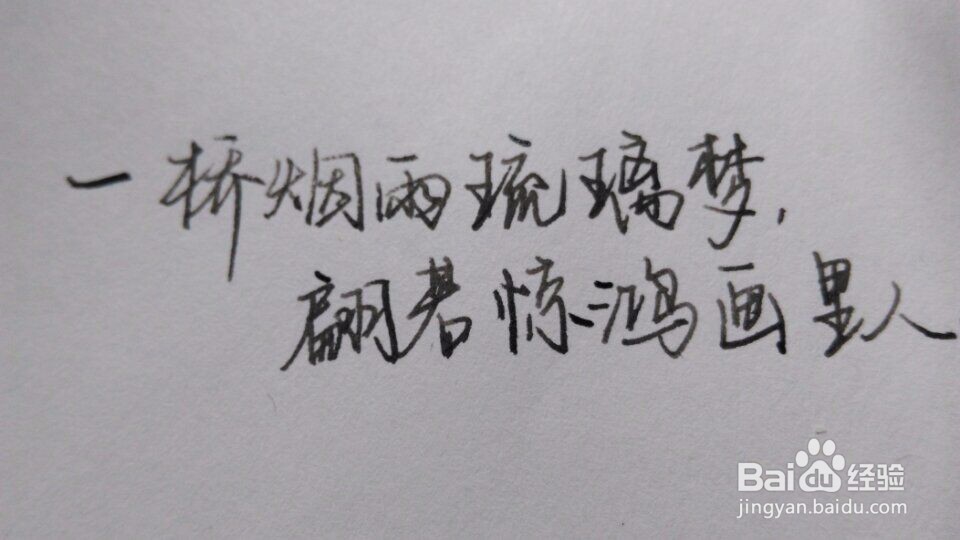 一桥烟雨琉璃梦,
翩若惊鸿画里人
Baidu经验
jingyan.baidu.com